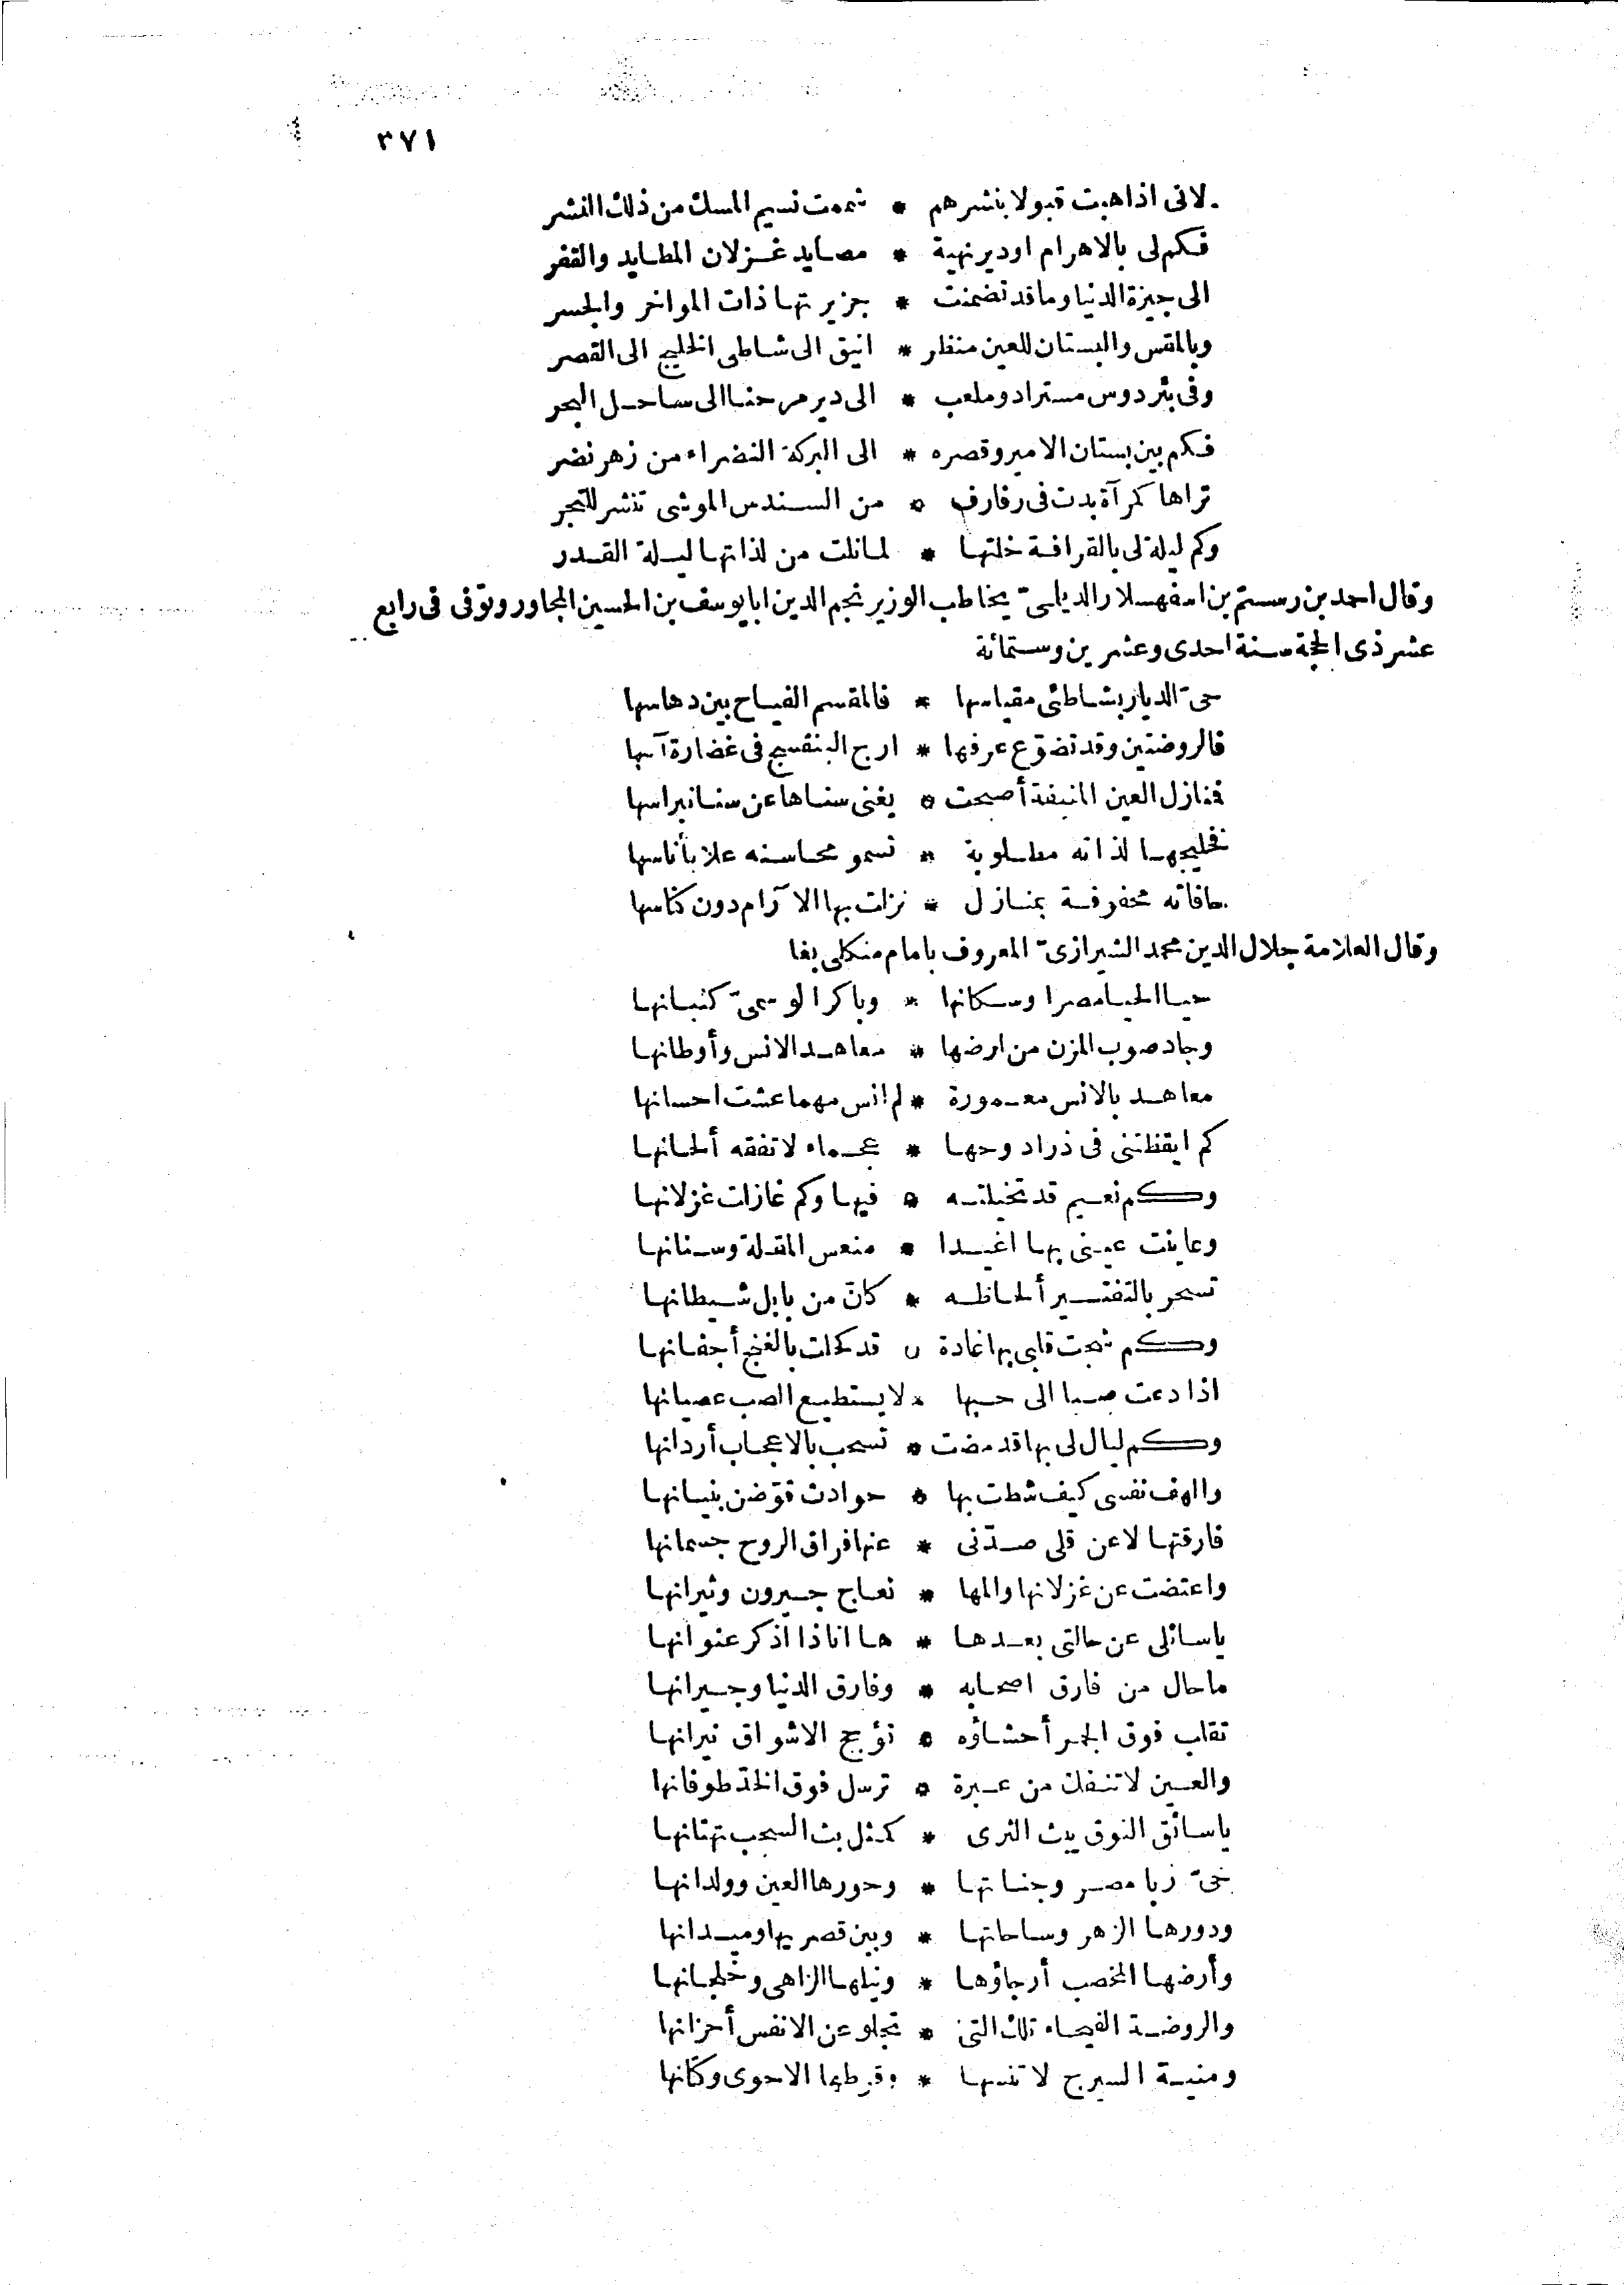 ٣٧١
لانى اذا هبت قبولا بنشرهم * شممت نسيم المسك من ذلك النشر
فكم لى بالاهرام او دير نهية * مصايد غزلان المطايد والقفر
الى جيزة الدنيا وما قد تضمنت * جزيرتها ذات المواخر والجسر
وبالمقس والبستان للعين منظر * انيق الى شاطى الخليج الى القصر
وفى بئر دوس مستراد وملعب * الى دير مرحنا الى ساحل البحر
فكم بين بستان الامير وقصره * الى البركة النضراء من زهر نضر
تراها كمرآة بدت فى رفارف * من السندس الموشى تنشر للتجر
وكم ليلة لى بالقرافة خلتها * لما نلت من لذاتها ليلة القدر
وقال احمد بن رستم بن اسفهسلار الديلمىّ يخاطب الوزير نجم الدين ابا يوسف بن الحسين المجاور وتوفى فى رابع
عشر ذى الحجة سنة احدى وعشرين وستمائة
حىّ الديار بشاطئ مقياسها * فالمقسم الفياح بين دهاسها
فالروضتين وقد تضوّع عرفها * ارج البنفسج فى غضارة آسها
فمنازل العين المنيفة أصبحت * يغنى سناها عن سنا نبراسها
فخليجها لذاته مطلوبة * تسمو محاسنه علا بأناسها
حافاته محفوفة بمنازل * نزلت بها الآرام دون كناسها
وقال العلامة جلال الدين محمد الشيرازىّ المعروف بامام منكلى بغا
حيا الحيا مصرا وسكانها * وباكر الوسمىّ كثبانها
وجاد صوب المزن من ارضها * معاهد الانس وأوطانها
معاهد بالانس معمورة * لم انس مهما عشت احسانها
كم ايقظتنى فى ذرا دوحها * عجماء لا تفقه ألحانها
وكم نعيم قد تخيلته * فيها وكم غازلت غزلانها
وعاينت عينى بها اغيدا * منعس المقلة وسنانها
تسحر بالتفتير ألحاظه * كأنّ من بابل شيطانها
وكم شجت قلبى بها غادة * قد كحلت بالغنج أجفانها
اذا دعت صبا الى حبها * لا يستطيع الصب عصيانها
وكم ليال لى بها قد مضت * تسحب بالاعجاب أردانها
والهف نفسى كيف شطت بها * حوادث قوّضن بنيانها
فارقتها لا عن قلى صدّنى * عنها فراق الروح جسمانها
واعتضت عن غزلانها والمها * نعاج جيرون وثيرانها
يا سائلى عن حالتى بعدها * ها انا ذا اذكر عنوانها
ما حال من فارق اصحابه * وفارق الدنيا وجيرانها
تقلب فوق الجمر أحشاؤه * تؤجج الاشواق نيرانها
والعين لا تنفك من عبرة * ترسل فوق الخدّ طوفانها
يا سائق النوق يبث الثرى * كمثل بث السحب تهتانها
حىّ ربا مصر وجناتها * وحورها العين وولدانها
ودورها الزهر وساحاتها * وبين قصريها وميدانها
وأرضها المخصب أرجاؤها * ونيلها الزاهى وخلجانها
والروضة الفيحاء تلك التى * تجلو عن الانفس أحزانها
ومنية السيرج لا تنسها * وقرطها الاحوى وكتانها